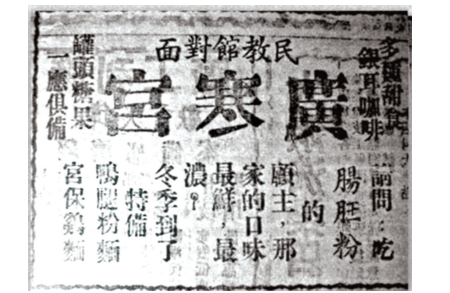 民教館對面
廣寒宮
多種甜食
銀耳咖啡
罐頭糖果
一應俱備
請問：吃
腸旺粉
的
顧主，那
家的口味
最鮮，最
濃？
冬季到了
特備
鴨腿粉麵
宮保鷄麵